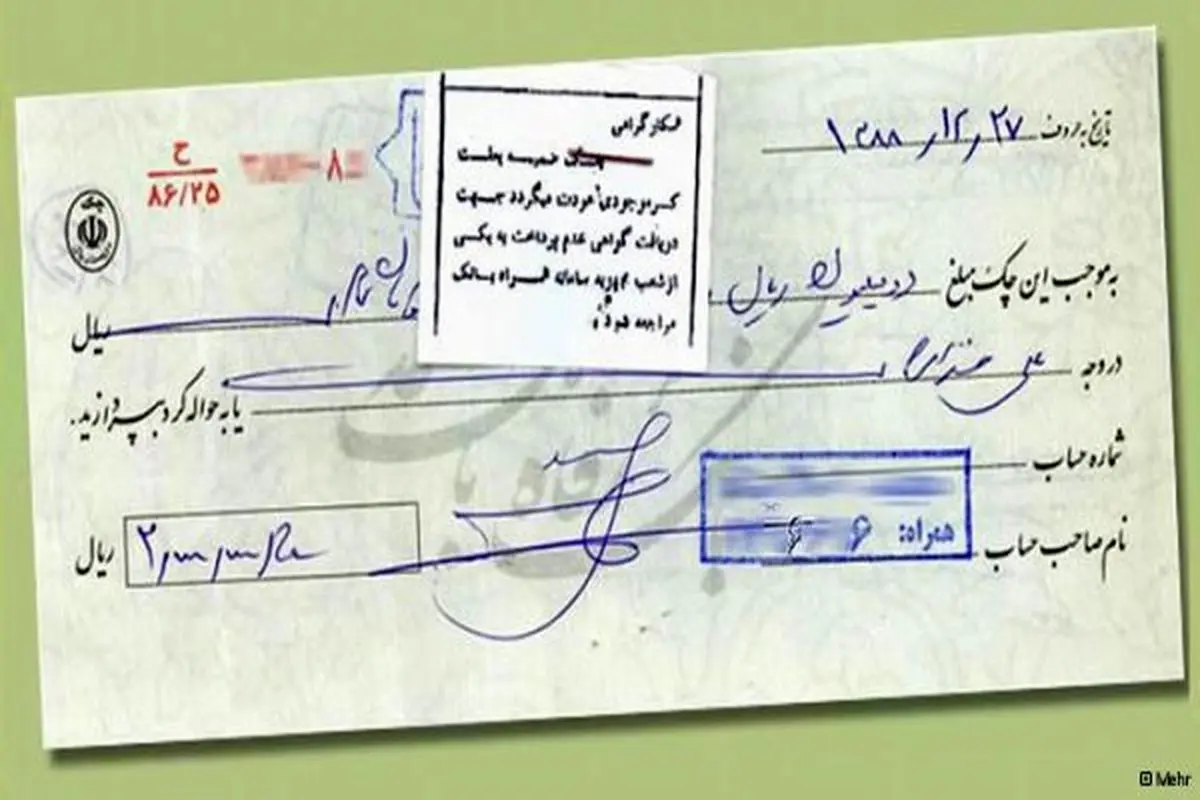 تاریخ به حروف ۱۳۸۸/۱۲/۲۷
ح
۸۶/۲۵
۸
چک
همکار گرامی
چک ضمیمه بعلت
کسر موجودی عودت میگردد جهت
دریافت گواهی عدم پرداخت به یکی
از شعب مجهز به سامانه همراه بانک
مراجعه شود
به موجب این چک مبلغ دو میلیون ریال
ریال
در وجه علی
یا به حواله کرد بپردازید.
شماره حساب
همراه:
نام صاحب حساب
ریال
© Mehr